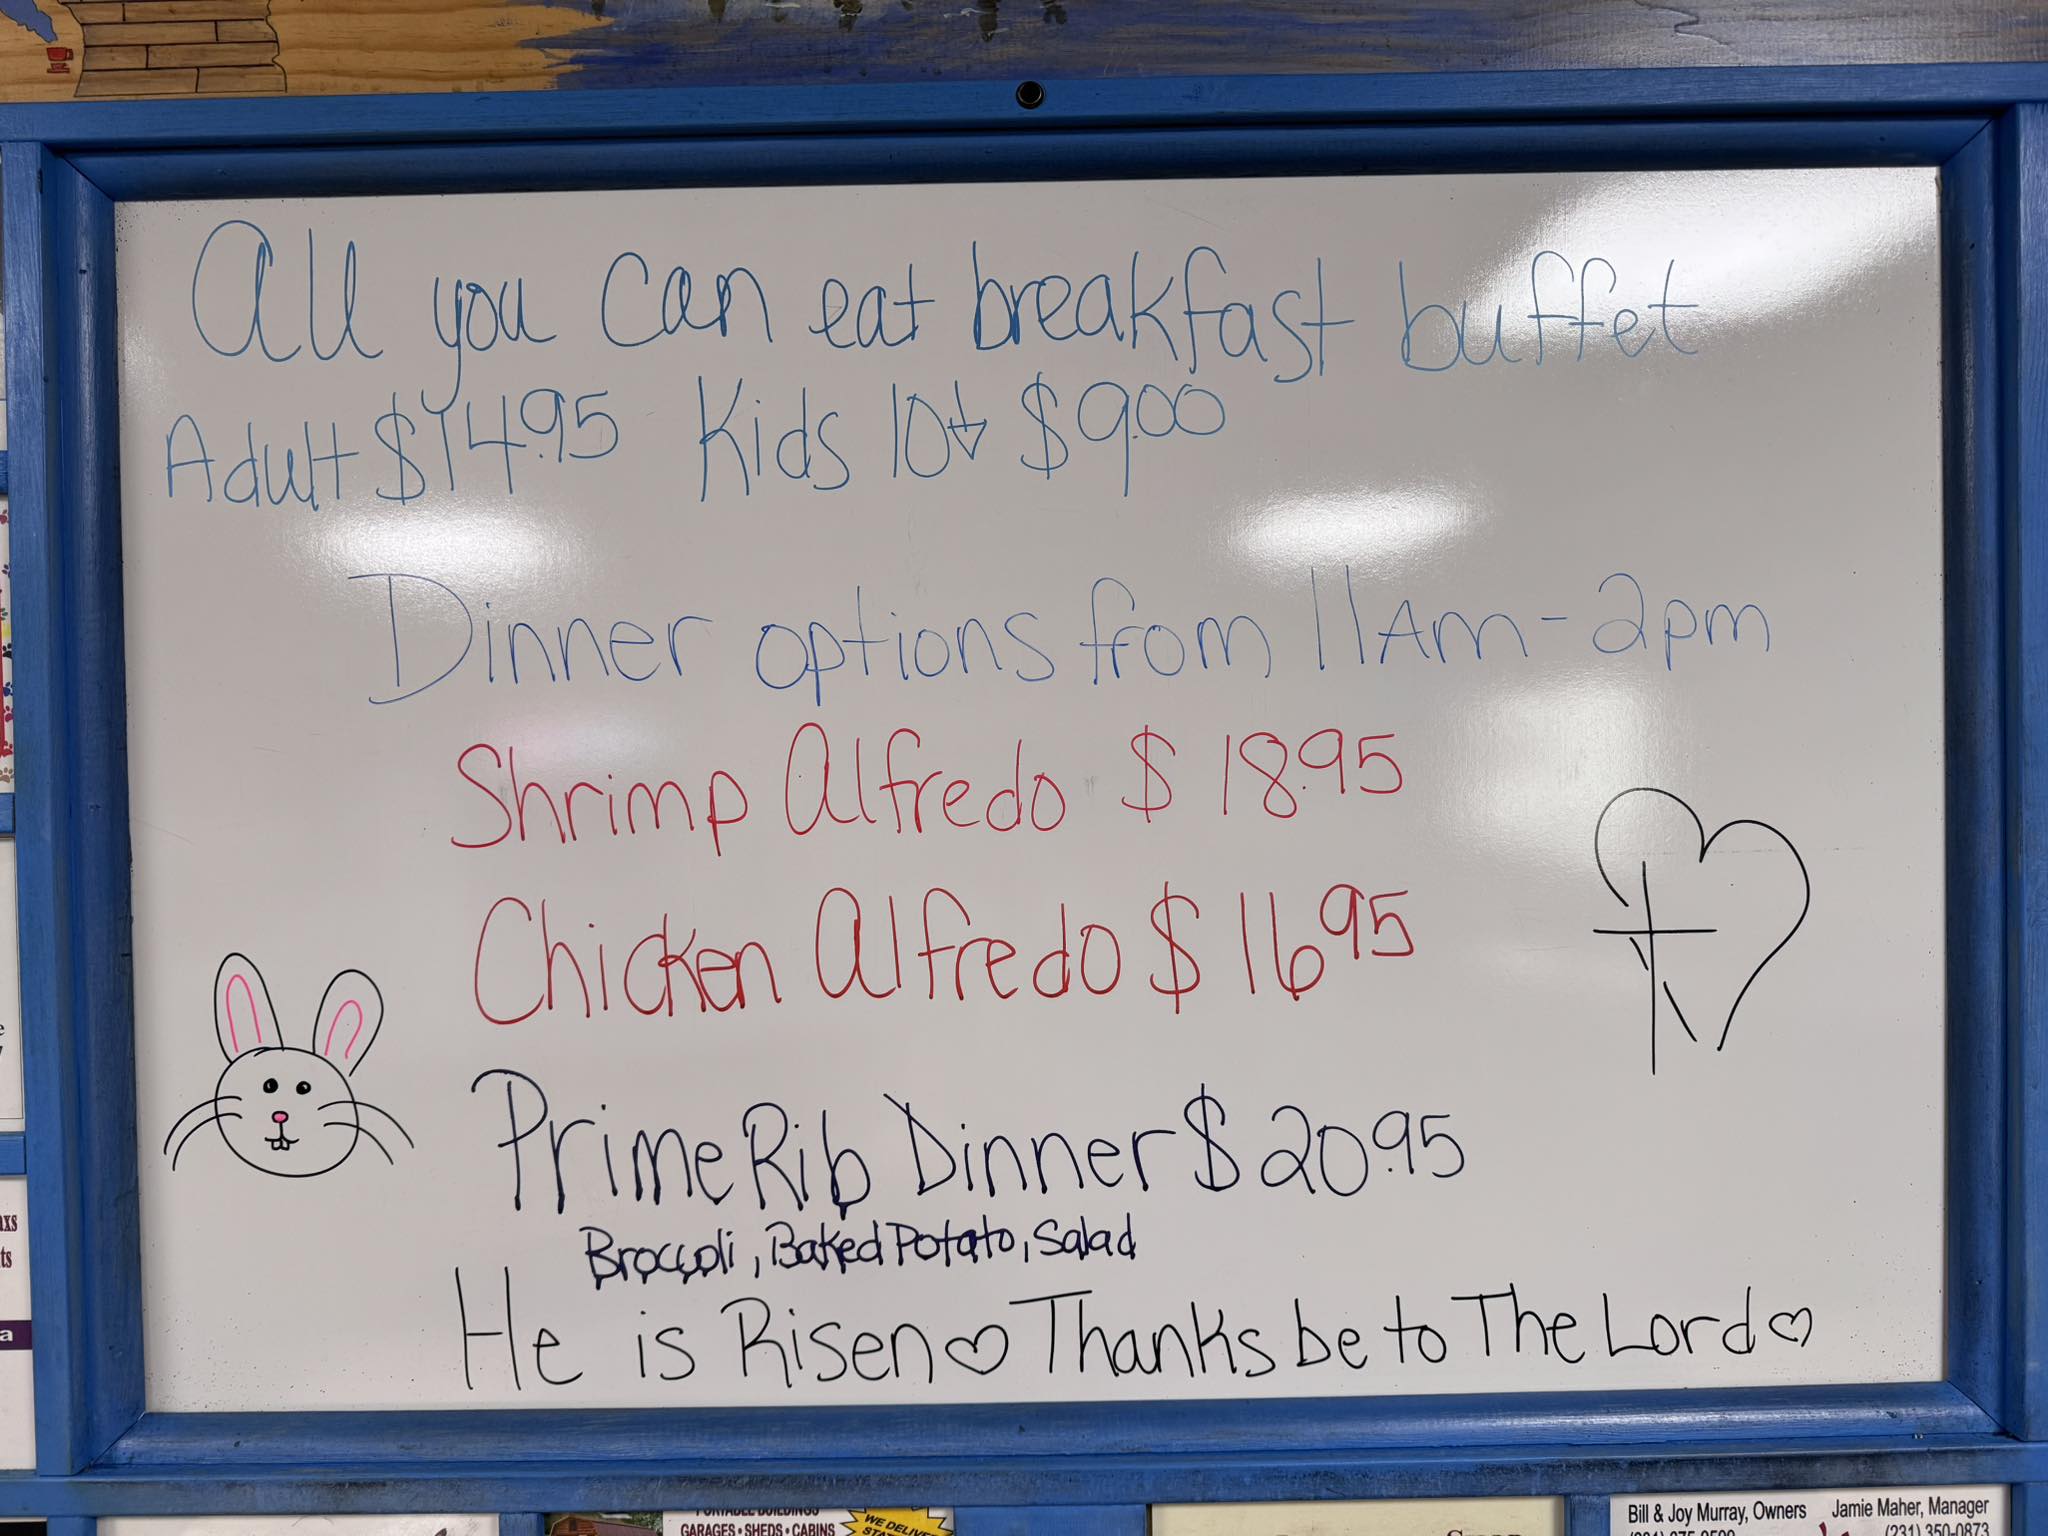 All you can eat breakfast buffet
Adult $14.95 Kids 10↓ $9.00
Dinner options from 11Am-2pm
Shrimp Alfredo $18.95
Chicken Alfredo $16.95
Prime Rib Dinner $20.95
Broccoli, Baked Potato, Salad
He is Risen♡ Thanks be to The Lord♡
PORTABLE BUILDINGS
GARAGES • SHEDS • CABINS
WE DELIVER
Bill & Joy Murray, Owners
Jamie Maher, Manager
(231) 350-0873